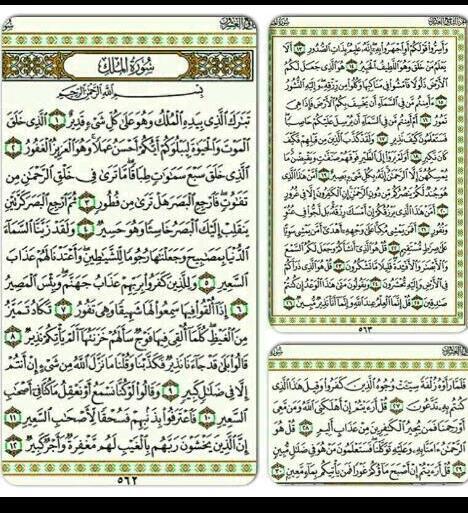 سُورَةُ المُلْكِ
بِسْمِ اللَّهِ الرَّحْمَٰنِ الرَّحِيمِ
تَبَٰرَكَ الَّذِي بِيَدِهِ الْمُلْكُ وَهُوَ عَلَىٰ كُلِّ شَيْءٍ قَدِيرٌ ١ الَّذِي خَلَقَ
الْمَوْتَ وَالْحَيَوٰةَ لِيَبْلُوَكُمْ أَيُّكُمْ أَحْسَنُ عَمَلًا وَهُوَ الْعَزِيزُ الْغَفُورُ ٢
الَّذِي خَلَقَ سَبْعَ سَمَٰوَٰتٍ طِبَاقًا مَّا تَرَىٰ فِي خَلْقِ الرَّحْمَٰنِ مِن
تَفَٰوُتٍ فَارْجِعِ الْبَصَرَ هَلْ تَرَىٰ مِن فُطُورٍ ٣ ثُمَّ ارْجِعِ الْبَصَرَ كَرَّتَيْنِ
يَنقَلِبْ إِلَيْكَ الْبَصَرُ خَاسِئًا وَهُوَ حَسِيرٌ ٤ وَلَقَدْ زَيَّنَّا السَّمَاءَ
الدُّنْيَا بِمَصَٰبِيحَ وَجَعَلْنَٰهَا رُجُومًا لِّلشَّيَٰطِينِ وَأَعْتَدْنَا لَهُمْ عَذَابَ
السَّعِيرِ ٥ وَلِلَّذِينَ كَفَرُوا بِرَبِّهِمْ عَذَابُ جَهَنَّمَ وَبِئْسَ الْمَصِيرُ
٦ إِذَا أُلْقُوا فِيهَا سَمِعُوا لَهَا شَهِيقًا وَهِيَ تَفُورُ ٧ تَكَادُ تَمَيَّزُ
مِنَ الْغَيْظِ كُلَّمَا أُلْقِيَ فِيهَا فَوْجٌ سَأَلَهُمْ خَزَنَتُهَا أَلَمْ يَأْتِكُمْ نَذِيرٌ ٨
قَالُوا بَلَىٰ قَدْ جَاءَنَا نَذِيرٌ فَكَذَّبْنَا وَقُلْنَا مَا نَزَّلَ اللَّهُ مِن شَيْءٍ إِنْ أَنتُمْ
إِلَّا فِي ضَلَٰلٍ كَبِيرٍ ٩ وَقَالُوا لَوْ كُنَّا نَسْمَعُ أَوْ نَعْقِلُ مَا كُنَّا فِي أَصْحَٰبِ
السَّعِيرِ ١٠ فَاعْتَرَفُوا بِذَنبِهِمْ فَسُحْقًا لِّأَصْحَٰبِ السَّعِيرِ ١١
إِنَّ الَّذِينَ يَخْشَوْنَ رَبَّهُم بِالْغَيْبِ لَهُم مَّغْفِرَةٌ وَأَجْرٌ كَبِيرٌ ١٢
٥٦٢
وَأَسِرُّوا قَوْلَكُمْ أَوِ اجْهَرُوا بِهِ إِنَّهُ عَلِيمٌ بِذَاتِ الصُّدُورِ ١٣ أَلَا
يَعْلَمُ مَنْ خَلَقَ وَهُوَ اللَّطِيفُ الْخَبِيرُ ١٤ هُوَ الَّذِي جَعَلَ لَكُمُ
الْأَرْضَ ذَلُولًا فَامْشُوا فِي مَنَاكِبِهَا وَكُلُوا مِن رِّزْقِهِ وَإِلَيْهِ النُّشُورُ
١٥ ءَأَمِنتُم مَّن فِي السَّمَاءِ أَن يَخْسِفَ بِكُمُ الْأَرْضَ فَإِذَا هِيَ
تَمُورُ ١٦ أَمْ أَمِنتُم مَّن فِي السَّمَاءِ أَن يُرْسِلَ عَلَيْكُمْ حَاصِبًا
فَسَتَعْلَمُونَ كَيْفَ نَذِيرِ ١٧ وَلَقَدْ كَذَّبَ الَّذِينَ مِن قَبْلِهِمْ فَكَيْفَ
كَانَ نَكِيرِ ١٨ أَوَلَمْ يَرَوْا إِلَى الطَّيْرِ فَوْقَهُمْ صَٰفَّٰتٍ وَيَقْبِضْنَ مَا
يُمْسِكُهُنَّ إِلَّا الرَّحْمَٰنُ إِنَّهُ بِكُلِّ شَيْءٍ بَصِيرٌ ١٩ أَمَّنْ هَٰذَا الَّذِي
هُوَ جُندٌ لَّكُمْ يَنصُرُكُم مِّن دُونِ الرَّحْمَٰنِ إِنِ الْكَٰفِرُونَ إِلَّا فِي غُرُورٍ
٢٠ أَمَّنْ هَٰذَا الَّذِي يَرْزُقُكُمْ إِنْ أَمْسَكَ رِزْقَهُ بَل لَّجُّوا فِي عُتُوٍّ
وَنُفُورٍ ٢١ أَفَمَن يَمْشِي مُكِبًّا عَلَىٰ وَجْهِهِ أَهْدَىٰ أَمَّن يَمْشِي سَوِيًّا
عَلَىٰ صِرَٰطٍ مُّسْتَقِيمٍ ٢٢ قُلْ هُوَ الَّذِي أَنشَأَكُمْ وَجَعَلَ لَكُمُ السَّمْعَ
وَالْأَبْصَٰرَ وَالْأَفْئِدَةَ قَلِيلًا مَّا تَشْكُرُونَ ٢٣ قُلْ هُوَ الَّذِي ذَرَأَكُمْ
فِي الْأَرْضِ وَإِلَيْهِ تُحْشَرُونَ ٢٤ وَيَقُولُونَ مَتَىٰ هَٰذَا الْوَعْدُ إِن كُنتُمْ
صَٰدِقِينَ ٢٥ قُلْ إِنَّمَا الْعِلْمُ عِندَ اللَّهِ وَإِنَّمَا أَنَا نَذِيرٌ مُّبِينٌ ٢٦
٥٦٣
فَلَمَّا رَأَوْهُ زُلْفَةً سِيئَتْ وُجُوهُ الَّذِينَ كَفَرُوا وَقِيلَ هَٰذَا الَّذِي
كُنتُم بِهِ تَدَّعُونَ ٢٧ قُلْ أَرَءَيْتُمْ إِنْ أَهْلَكَنِيَ اللَّهُ وَمَن مَّعِيَ
أَوْ رَحِمَنَا فَمَن يُجِيرُ الْكَٰفِرِينَ مِنْ عَذَابٍ أَلِيمٍ ٢٨ قُلْ هُوَ
الرَّحْمَٰنُ ءَامَنَّا بِهِ وَعَلَيْهِ تَوَكَّلْنَا فَسَتَعْلَمُونَ مَنْ هُوَ فِي ضَلَٰلٍ مُّبِينٍ
٢٩ قُلْ أَرَءَيْتُمْ إِنْ أَصْبَحَ مَاؤُكُمْ غَوْرًا فَمَن يَأْتِيكُم بِمَاءٍ مَّعِينٍ ٣٠